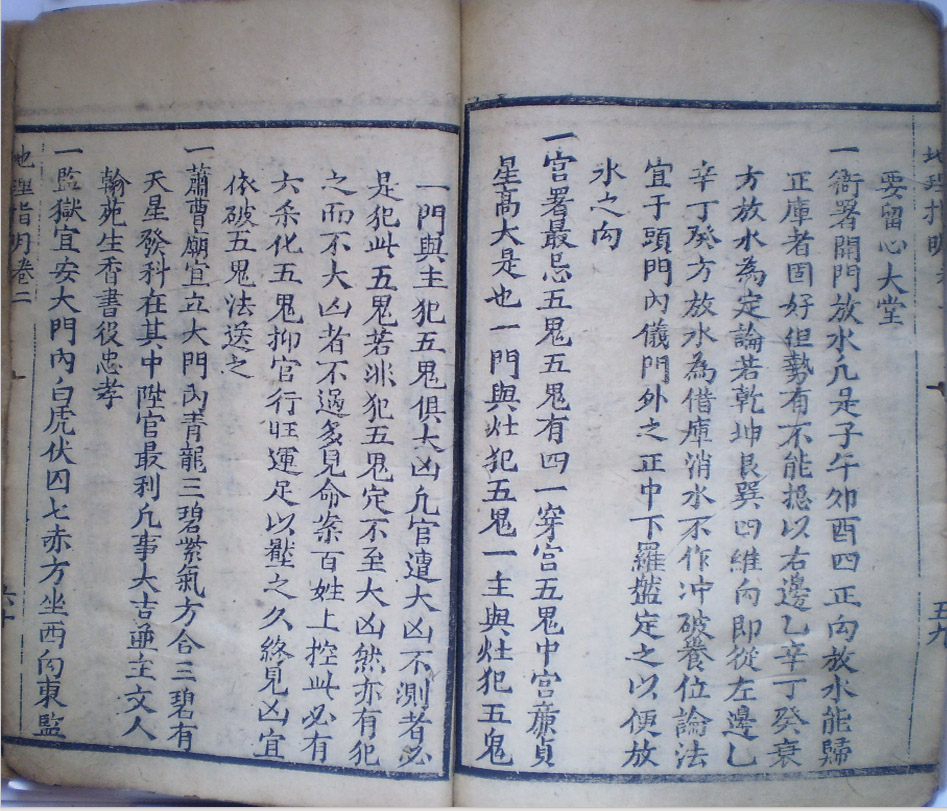 地理指明
五九
要留心大堂
一衙署開門放水凢是子午夘酉四正向放水能歸
正庫者固好但勢有不能揔以右邊乙辛丁癸衰
方放水為定論若乾坤艮巽四維向即從左邊乙
辛丁癸方放水為借庫消水不作冲破養位論法
宜于頭門內儀門外之正中下羅盤定之以便放
水之向
一宫署最忌五鬼五鬼有四一穿宫五鬼中宫廉貞
星髙大是也一門與灶犯五鬼一主與灶犯五鬼
一門與主犯五鬼俱大凶凢官遭大凶不測者必
是犯此五鬼若非犯五鬼定不至大凶然亦有犯
之而不大凶者不過多見命案百姓上控此必有
六杀化五鬼抑官行旺運足以壓之久終見凶宜
依破五鬼法送之
一蕭曹廟宜立大門內青龍三碧紫氣方合三碧有
天星發科在其中陞官最利凢事大吉並主文人
翰苑生香書役忠孝
一監獄宜安大門內白虎伏囚七赤方坐西向東監
地理指明卷二
六十